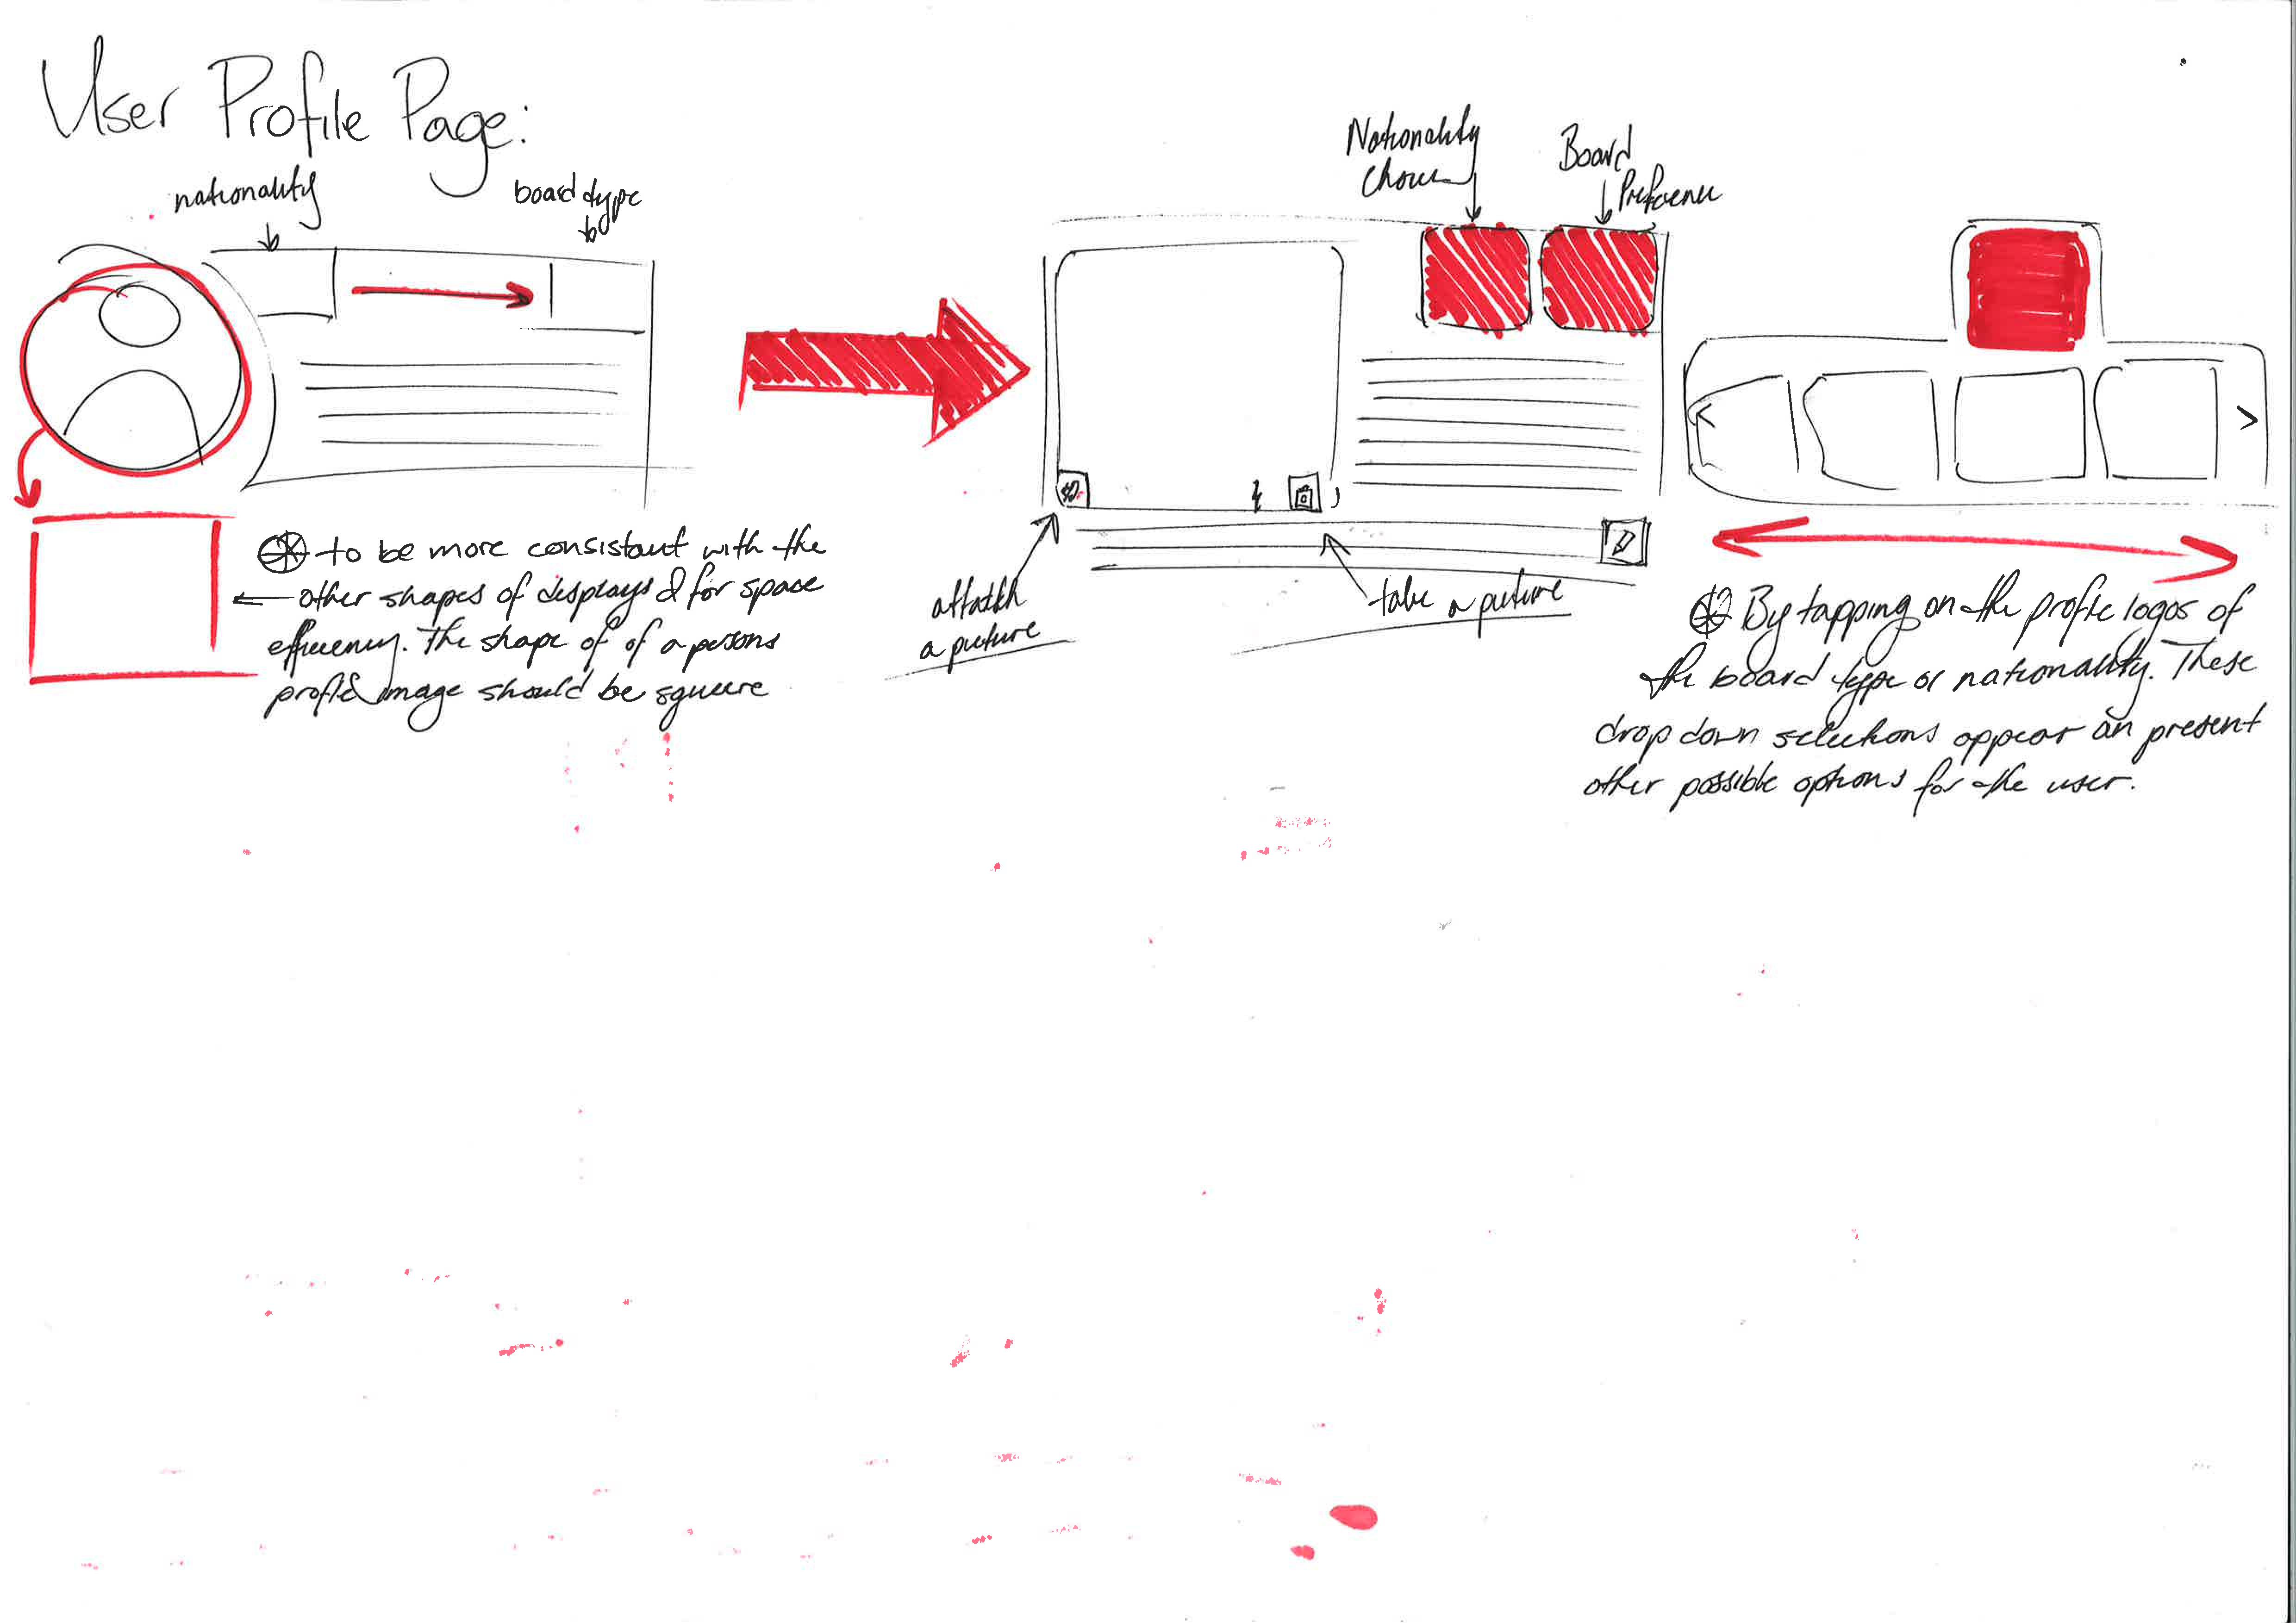 User Profile Page:
nationality
board type
Nationality
Board
Preference
to be more consistant with the
other shapes of displays & for space
efficiency. The shape of of a persons
profile image should be square
attatch
a picture
take a picture
By tapping on the profile logos of
the board type or nationality. These
drop down selections appear an present
other possible options for the user.